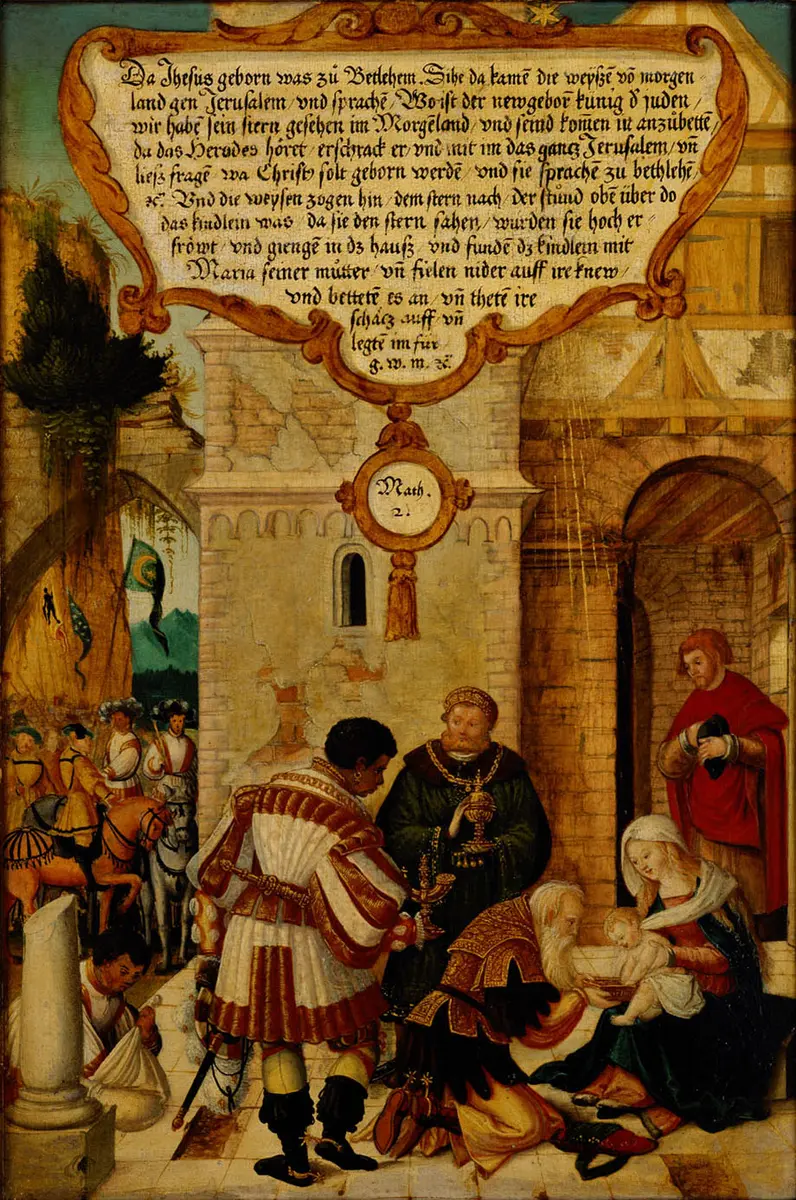 Da Jhesus geborn was zů Betlehem. Sihe da kamē die weyßen vō morgen
land gen Jerusalem / vnd sprachē / Wo ist der newgeborē kunig d̕ juden /
wir habē sein stern gesehen im Morgēland / vnd seind kom̄en in anzůbettē /
da das Herodes höret / erschrack er / vnd mit im das gantz Jerusalem / vn̄
ließ fragē wa Christ9 solt geborn werdē / vnd sie sprachē zu bethlehē /
ꝛc̄. Vnd die weysen zogen hin / dem stern nach / der stůnd obē über do
das kindlein was / da sie den stern sahen / wurden sie hoch er-
fröwt / vnd giengē in dz hauß vnd fundē dz kindlein mit
Maria seiner můtter / vn̄ fielen nider auff ire knew /
vnd bettetē es an / vn̄ thetē ire
schätz auff / vn̄
legtē im für
g. w. m. ꝛc̄.
Math.
2.